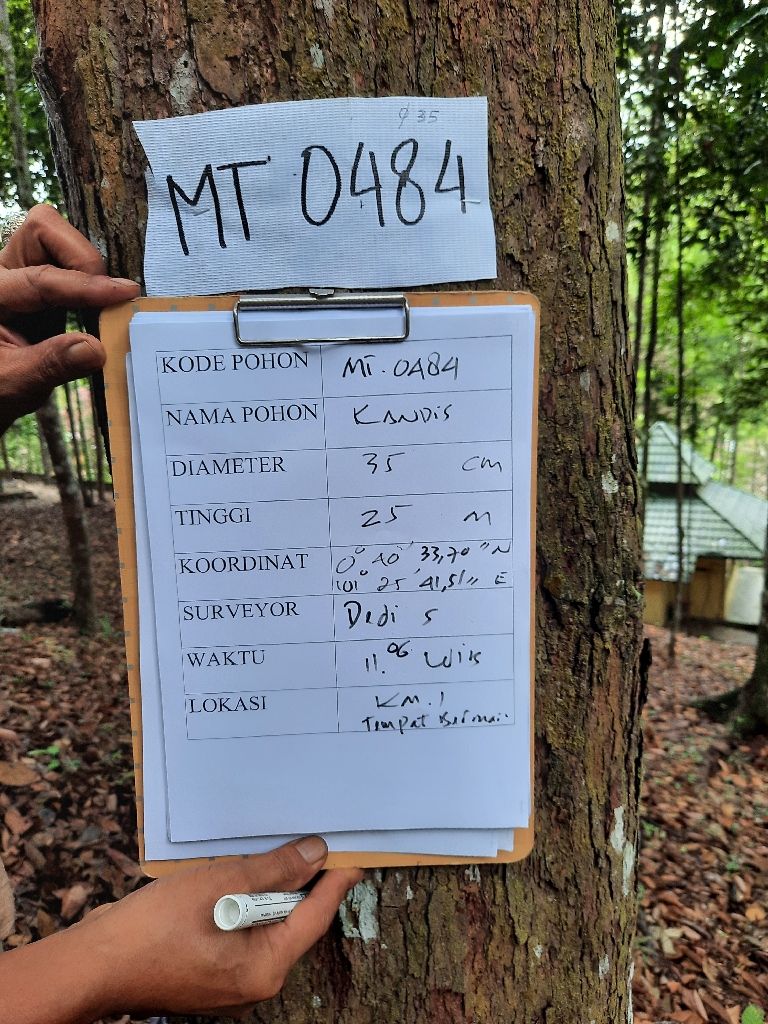 Ø 35
MT 0484
KODE POHON MT. 0484
NAMA POHON KANDIS
DIAMETER 35 cm
TINGGI 25 M
KOORDINAT 0° 40' 33,70" N
101° 25' 41,51" E
SURVEYOR Dedi S
WAKTU 11.06 Wib
LOKASI KM. 1
Tempat Bermain